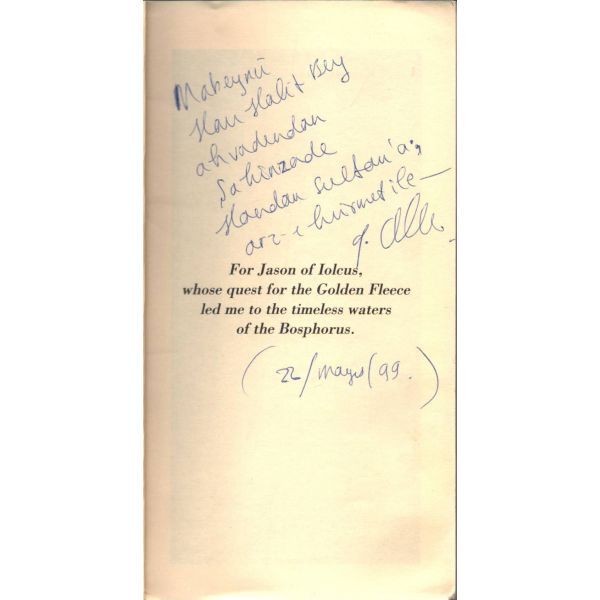 Mabeynü
Han Halit Bey
ahvadından
Şahinzade
Handan Sultan'a;
arz-ı hürmet ile —
For Jason of Iolcus,
whose quest for the Golden Fleece
led me to the timeless waters
of the Bosphorus.
(22/mayıs/99.)